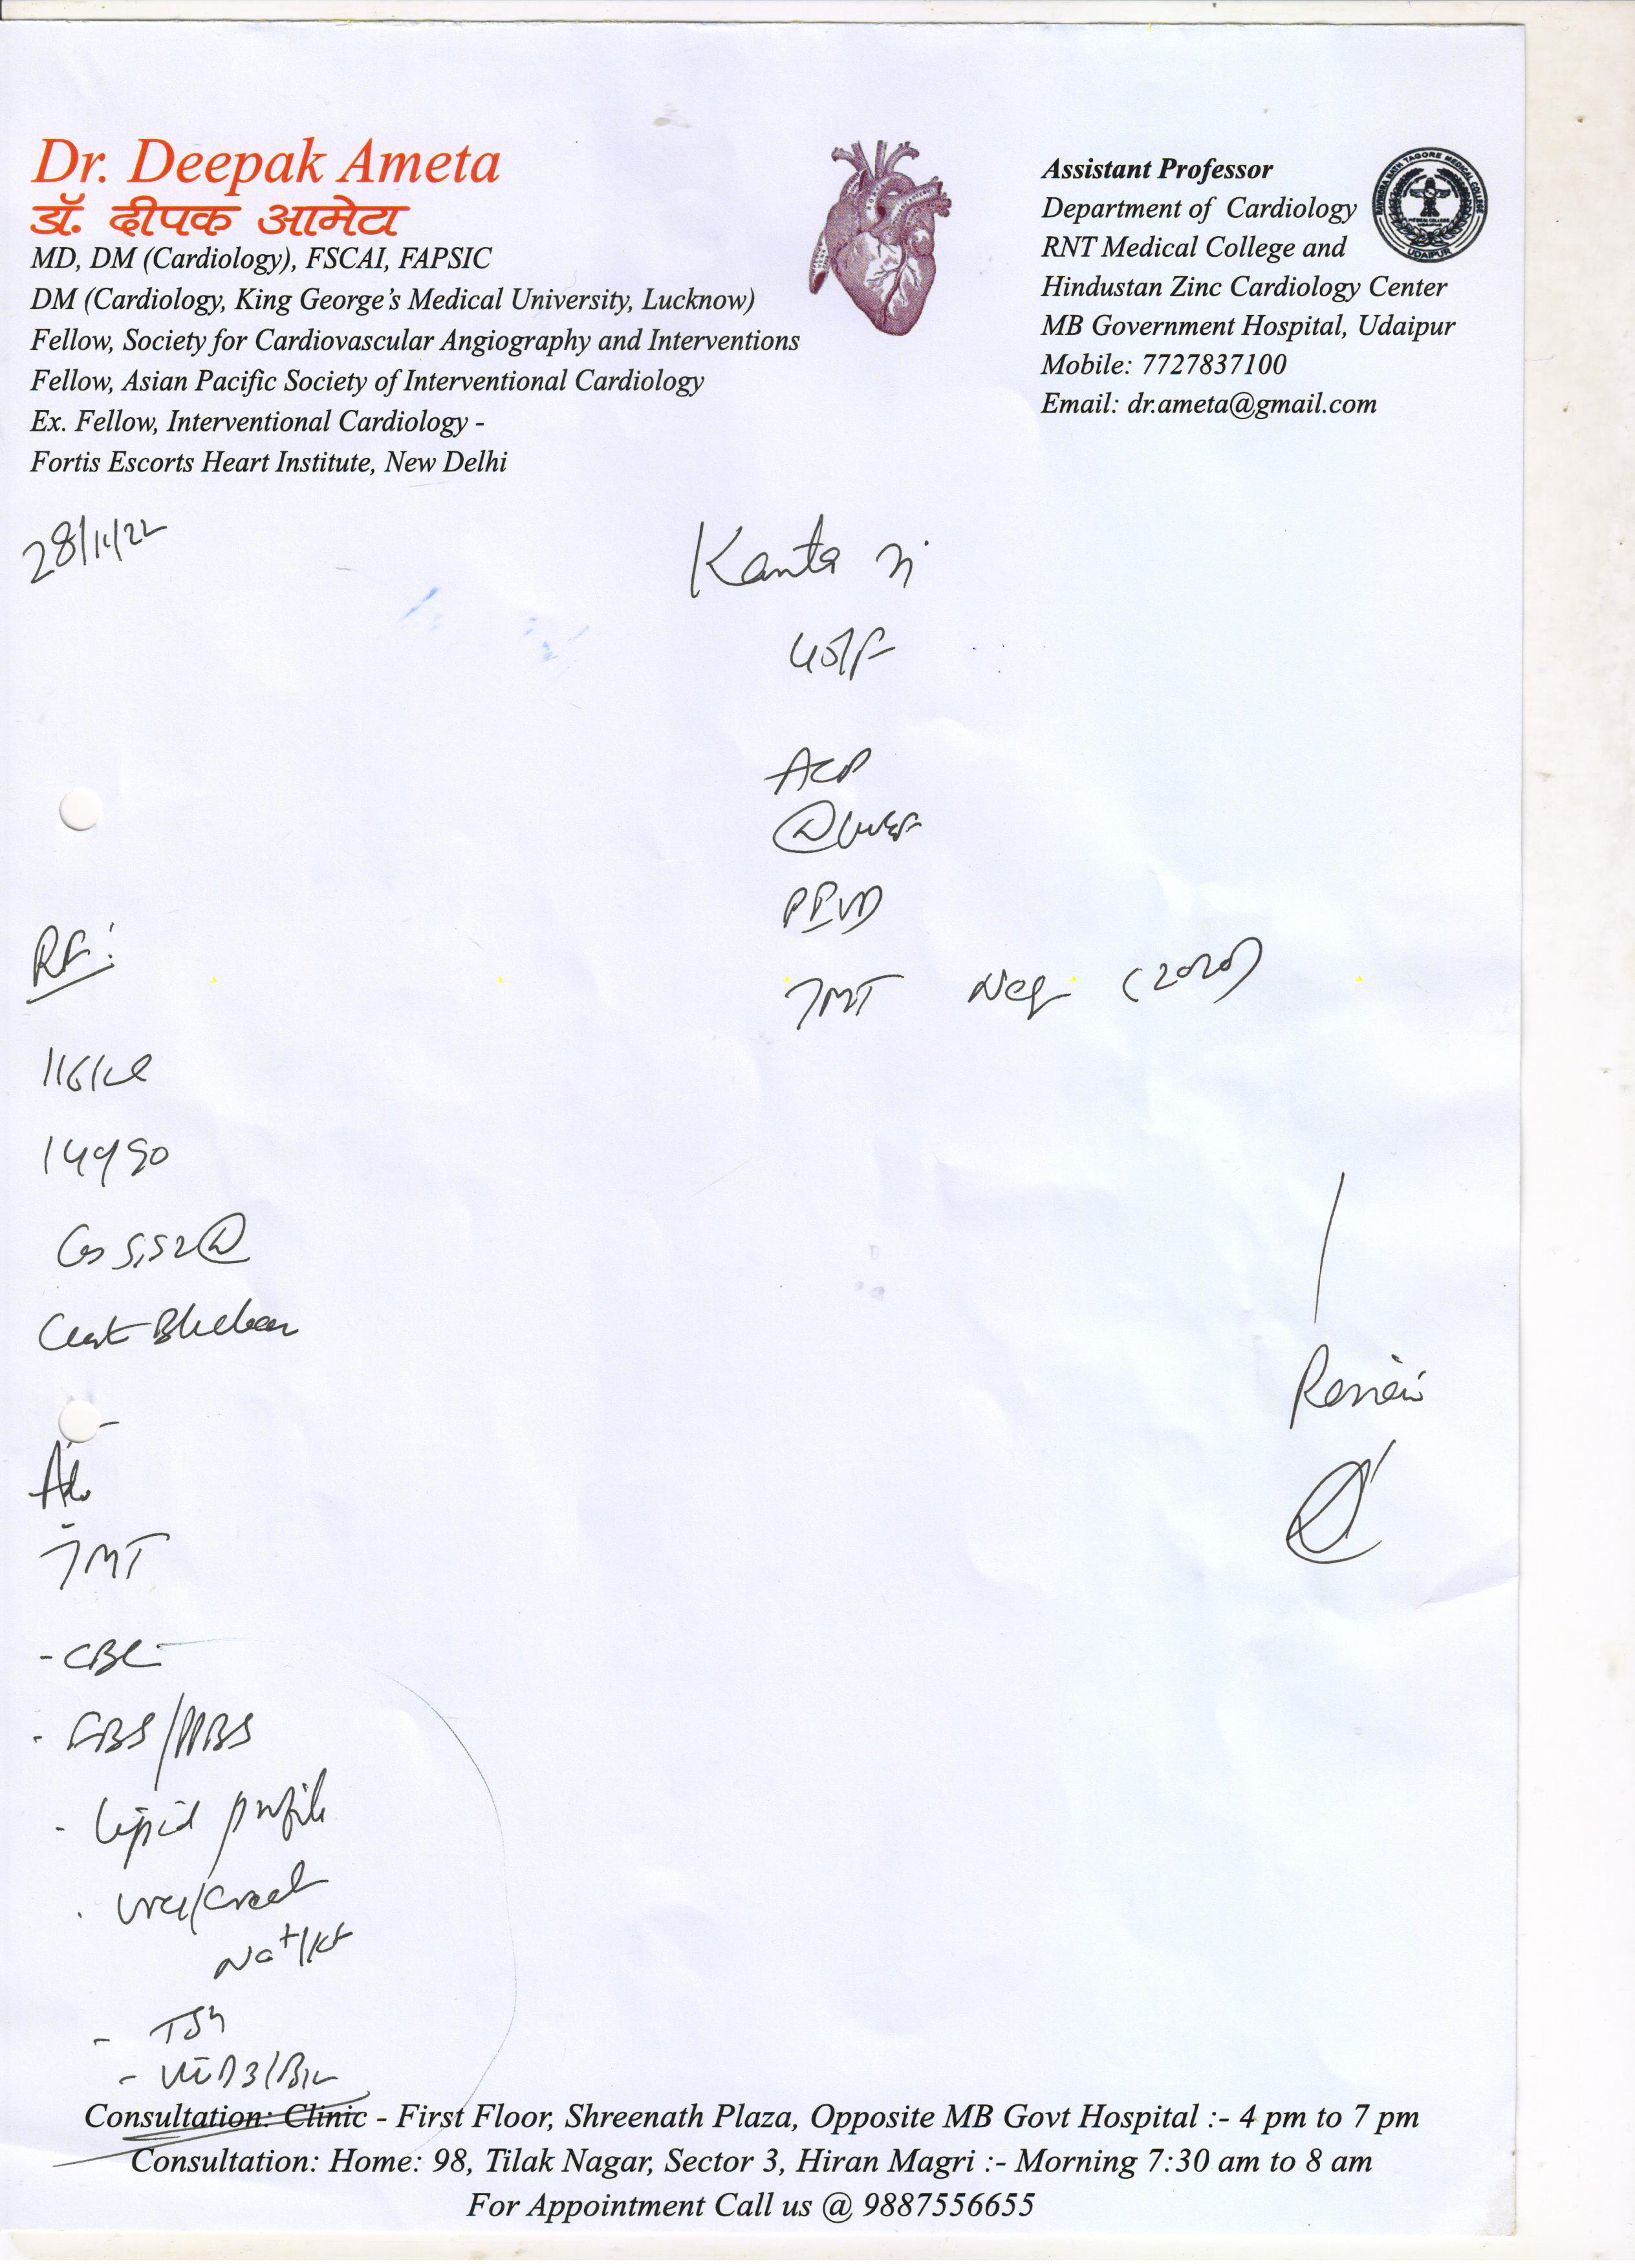 Dr. Deepak Ameta
डॉ. दीपक आमेटा
MD, DM (Cardiology), FSCAI, FAPSIC
DM (Cardiology, King George's Medical University, Lucknow)
Fellow, Society for Cardiovascular Angiography and Interventions
Fellow, Asian Pacific Society of Interventional Cardiology
Ex. Fellow, Interventional Cardiology -
Fortis Escorts Heart Institute, New Delhi
Assistant Professor
Department of Cardiology
RNT Medical College and
Hindustan Zinc Cardiology Center
MB Government Hospital, Udaipur
Mobile: 7727837100
Email: dr.ameta@gmail.com
RABINDRA NATH TAGORE MEDICAL COLLEGE
UDAIPUR
28/11/22
Kanta
ACP
TMT Neg (2020)
RF:
149/90
Chest
Review
Adv
TMT
- CBC
- FBS/PPBS
- Lipid profile
- Urea/Creat
Na+/K+
- TSH
- Vit D3/B12
Consultation: Clinic - First Floor, Shreenath Plaza, Opposite MB Govt Hospital :- 4 pm to 7 pm
Consultation: Home: 98, Tilak Nagar, Sector 3, Hiran Magri :- Morning 7:30 am to 8 am
For Appointment Call us @ 9887556655